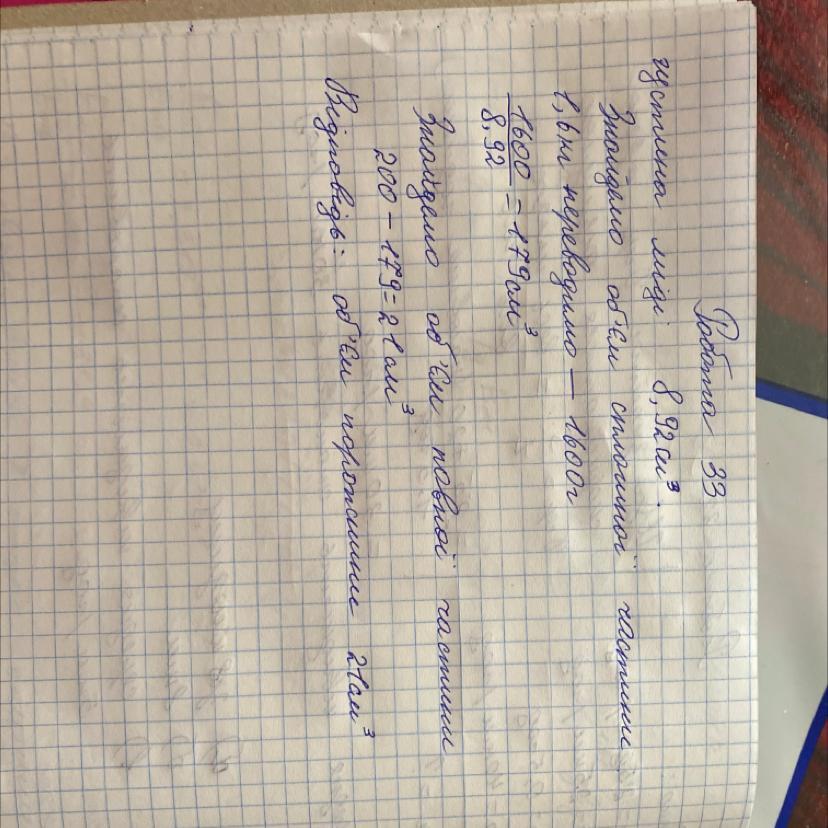 Робота 33
густина міді 8,92см³.
Знайдемо об'єм сплошної частини
1,6кг переводимо — 1600г
1600/8,92 = 179см³
Знайдемо об'єм повної частини
200 - 179 = 21см³
Відповідь: об'єм порожнини 21см³